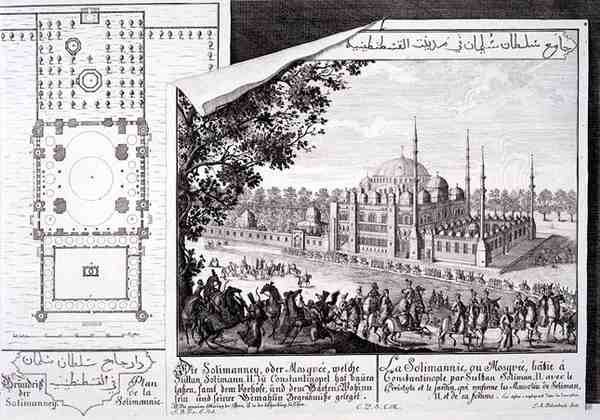 جامع سلطان سليمان في مدينت القسطنطينية
Die Solimanney, oder Mosquée, welche
Sultan Solimann. II. zu Constantinopel hat bauen
laßen, samt dem Vorhofe, und dem Garten, Wohinn
sein und seiner Gemahlin Begräbnuße geleget.
La Solimannie, ou Mosquée, bâtie à
Constantinople par Sultan Soliman. II. avec le
Peristyle et le jardin, qui renferme les Mausolées de Soliman
II. et de sa femme.
جامع سلطان سليمان
في القسطنطينية
Grundriß
der
Solimanney.
Plan
de la
Solimannie.